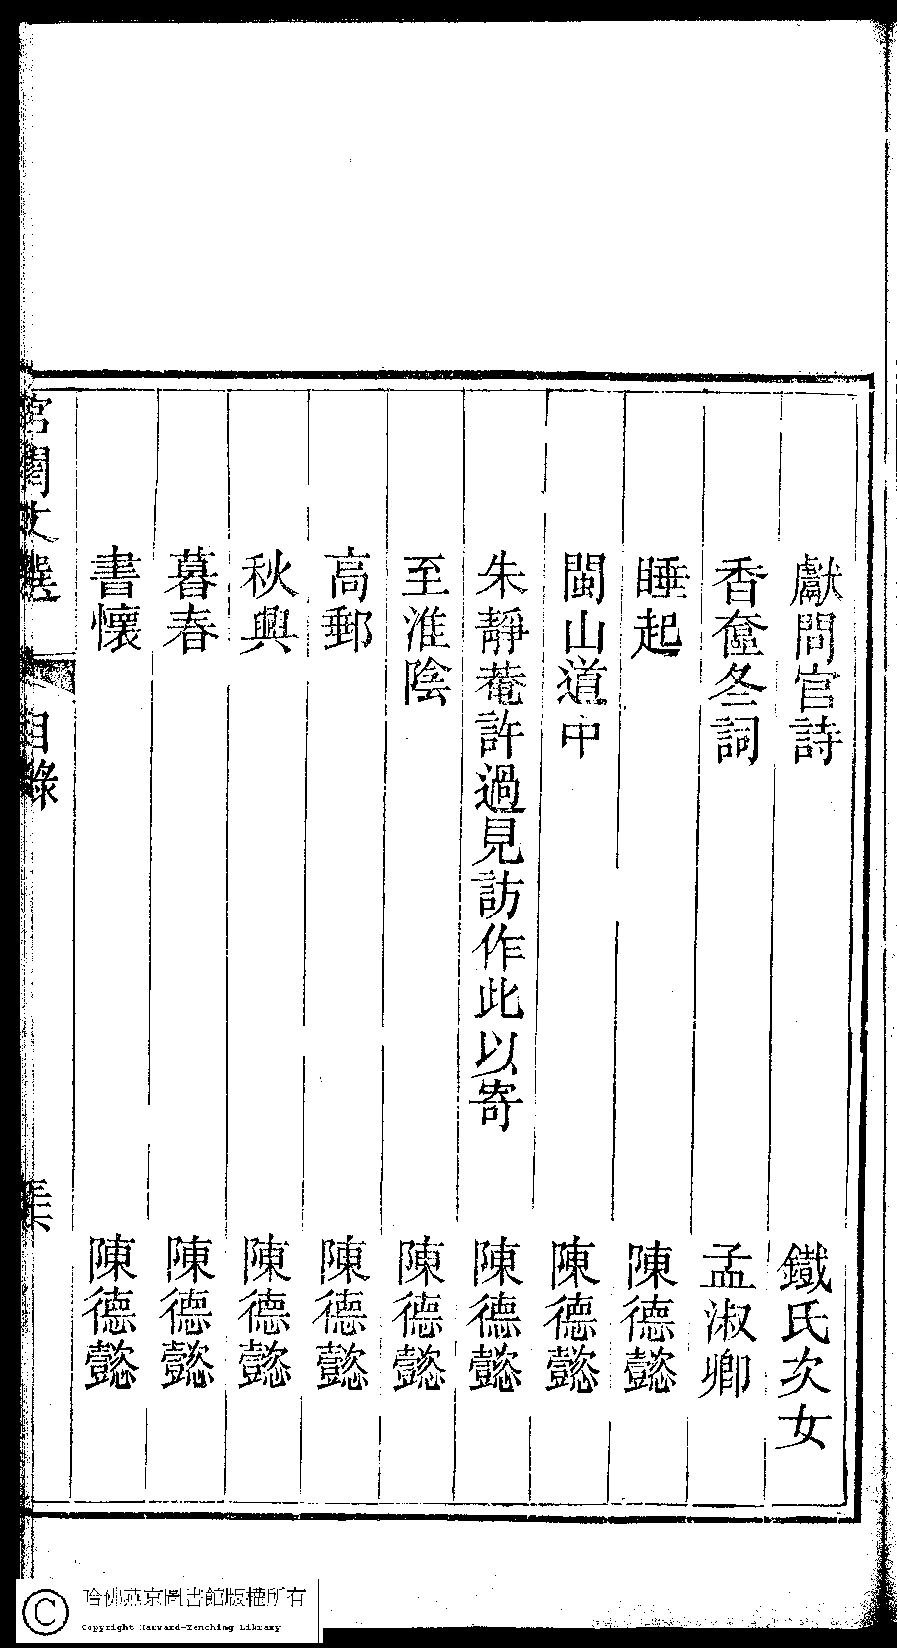 獻問官詩　鐵氏次女
香奩冬詞　孟淑卿
睡起　陳德懿
閩山道中　陳德懿
朱靜菴許過見訪作此以寄　陳德懿
至淮陰　陳德懿
高郵　陳德懿
秋興　陳德懿
暮春　陳德懿
書懷　陳德懿
宮閨文選　目錄
哈佛燕京圖書館版權所有
Copyright Harvard-Yenching Library